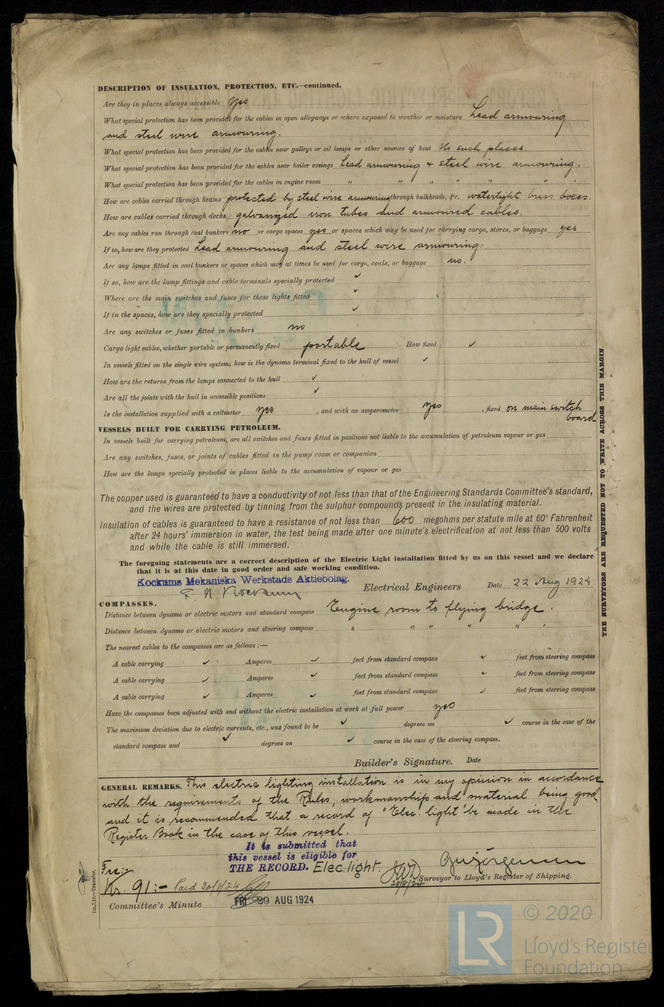 DESCRIPTION OF INSULATION, PROTECTION, ETC.—continued.
Are they in places always accessible yes
What special protection has been provided for the cables in open alleyways or where exposed to weather or moisture Lead armouring
and steel wire armouring.
What special protection has been provided for the cables near galleys or oil lamps or other sources of heat No such places.
What special protection has been provided for the cables near boiler casings Lead armouring & steel wire armouring.
What special protection has been provided for the cables in engine room " " " " " "
How are cables carried through beams protected by steel wire armouring through bulkheads, &c. watertight brass boxes.
How are cables carried through decks galvanized iron tubes and armoured cables.
Are any cables run through coal bunkers no or cargo spaces yes or spaces which may be used for carrying cargo, stores, or baggage yes
If so, how are they protected Lead armouring and steel wire armouring.
Are any lamps fitted in coal bunkers or spaces which may at times be used for cargo, coals, or baggage no.
If so, how are the lamp fittings and cable terminals specially protected ✓
Where are the main switches and fuses for these lights fitted ✓
If in the spaces, how are they specially protected ✓
Are any switches or fuses fitted in bunkers no
Cargo light cables, whether portable or permanently fixed portable How fixed ✓
In vessels fitted on the single wire system, how is the dynamo terminal fixed to the hull of vessel ✓
How are the returns from the lamps connected to the hull ✓
Are all the joints with the hull in accessible positions ✓
Is the installation supplied with a voltmeter yes , and with an amperemeter yes , fixed on main switch
board
VESSELS BUILT FOR CARRYING PETROLEUM.
In vessels built for carrying petroleum, are all switches and fuses fitted in positions not liable to the accumulation of petroleum vapour or gas
Are any switches, fuses, or joints of cables fitted in the pump room or companion
How are the lamps specially protected in places liable to the accumulation of vapour or gas
The copper used is guaranteed to have a conductivity of not less than that of the Engineering Standards Committee's standard,
and the wires are protected by tinning from the sulphur compounds present in the insulating material.
Insulation of cables is guaranteed to have a resistance of not less than 600 megohms per statute mile at 60° Fahrenheit
after 24 hours' immersion in water, the test being made after one minute's electrification at not less than 500 volts
and while the cable is still immersed.
The foregoing statements are a correct description of the Electric Light installation fitted by us on this vessel and we declare
that it is at this date in good order and safe working condition.
Kockums Mekaniska Werkstads Aktiebolag.
Electrical Engineers Date 22 Aug 1924
COMPASSES.
Distance between dynamo or electric motors and standard compass Engine room to flying bridge.
Distance between dynamo or electric motors and steering compass " " " " "
The nearest cables to the compasses are as follows :—
A cable carrying ✓ Amperes ✓ feet from standard compass ✓ feet from steering compass
A cable carrying ✓ Amperes ✓ feet from standard compass ✓ feet from steering compass
A cable carrying ✓ Amperes ✓ feet from standard compass ✓ feet from steering compass
Have the compasses been adjusted with and without the electric installation at work at full power yes
The maximum deviation due to electric currents, etc., was found to be ✓ degrees on ✓ course in the case of the
standard compass and ✓ degrees on ✓ course in the case of the steering compass.
Builder's Signature. Date
GENERAL REMARKS. This electric lighting installation is in my opinion in accordance
with the requirements of the Rules, workmanship and material being good
and it is recommended that a record of "Elec. light" be made in the
Register Book in the case of this vessel.
It is submitted that
this vessel is eligible for
THE RECORD. Elec. light.
Fee:-
Kr. 91:-
Surveyor to Lloyd's Register of Shipping.
Committee's Minute FRI 29 AUG 1924
THE SURVEYORS ARE REQUESTED NOT TO WRITE ACROSS THIS MARGIN
© 2020
LR
Lloyd's Register
Foundation